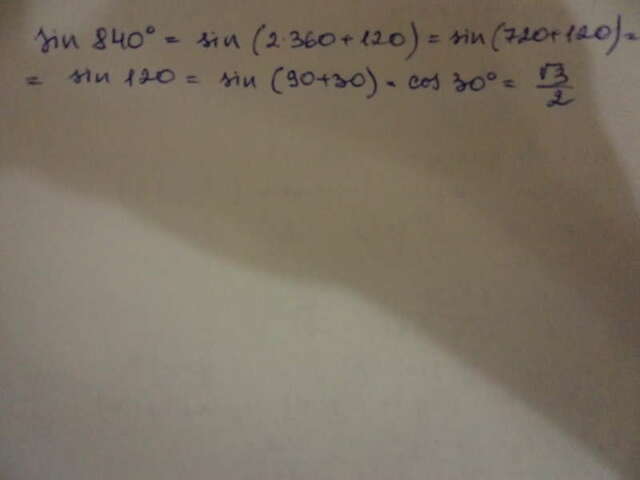 sin 840° = sin (2·360+120) = sin (720+120) =
= sin 120 = sin (90+30) = cos 30° = √3/2